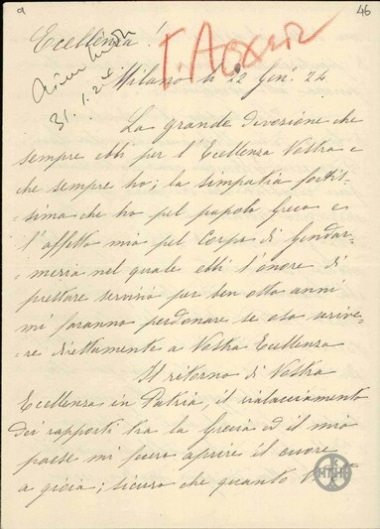 46
Eccellenza!
Γ. Αρχεία
31.1.24
Milano li 22 Gen. 24
La grande devozione che
sempre ebbi per l'Eccellenza Vostra e
che sempre ho; la simpatia fortis-
-sima che ho pel popolo Greco e
l'affetto mio pel Corpo di Gendar-
-meria nel quale ebbi l'onore di
prestare servizio per ben otto anni
mi faranno perdonare se oso scrive-
-re direttamente a Vostra Eccellenza
Il ritorno di Vostra
Eccellenza in Patria, il rialacciamento
dei rapporti tra la Grecia ed il mio
paese mi fecero aprire il cuore
a gioia; sicuro che quanto